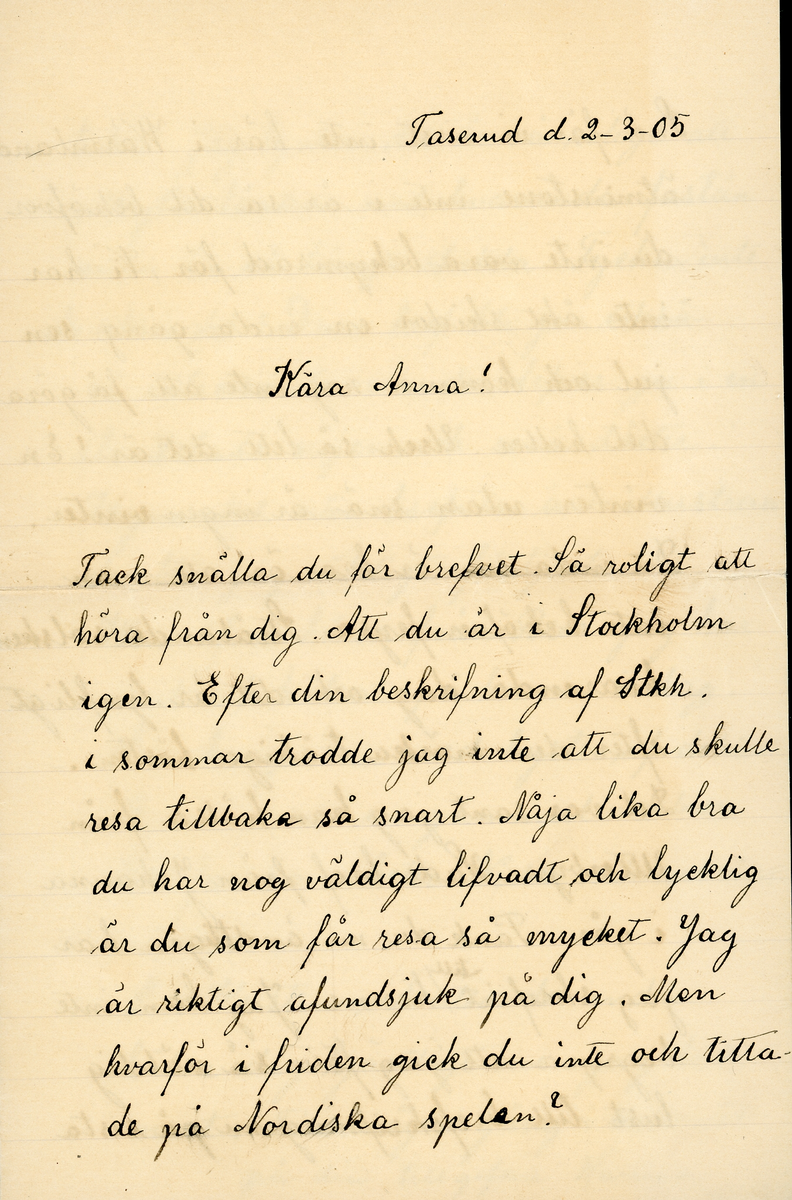 Taserud d. 2-3-05
Kära Anna!
Tack snälla du för brefvet. Så roligt att
höra från dig. Att du är i Stockholm
igen. Efter din beskrifning af Stkh.
i sommar trodde jag inte att du skulle
resa tillbaka så snart. Nåja lika bra
du har nog väldigt lifvadt och lycklig
är du som får resa så mycket. Jag
är riktigt afundsjuk på dig. Men
hvarför i friden gick du inte och titta-
de på Nordiska spelen?